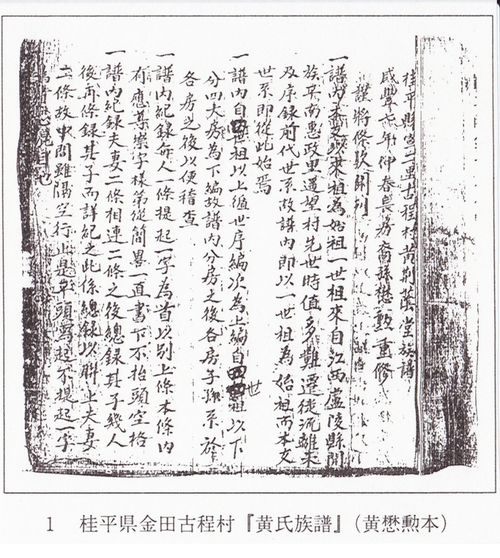 桂平縣宣二里古程村黄荆蔭堂族譜
咸豐六年仲春長房裔孫懋勳重修
謹將條款開列
一譜内本支以來祖為始祖一世祖來自江西廬陵縣
族平南惠政里還望村先世時值多難遷徙流離未
及序録前代世系故譜内即以一世祖為始祖而本支
世系即從此始焉
一譜内自四世祖以上循世序編次為上編自四世祖以下
分四大房為下編故譜内分房之後各房子孫系於
各房之後以便稽查
一譜内紀録每人一條提起一字為首以别上條本條内
有應尊崇字樣常從簡畧一直書下不抬頭空格
一譜内紀録夫妻二條相連二條之後總録其子幾人
後再條録其子而詳紀之此係總録以聯上夫妻
二條故中間雖隔空行止是平頭寫起不提起一字
1 桂平県金田古程村『黄氏族譜』（黄懋勲本）